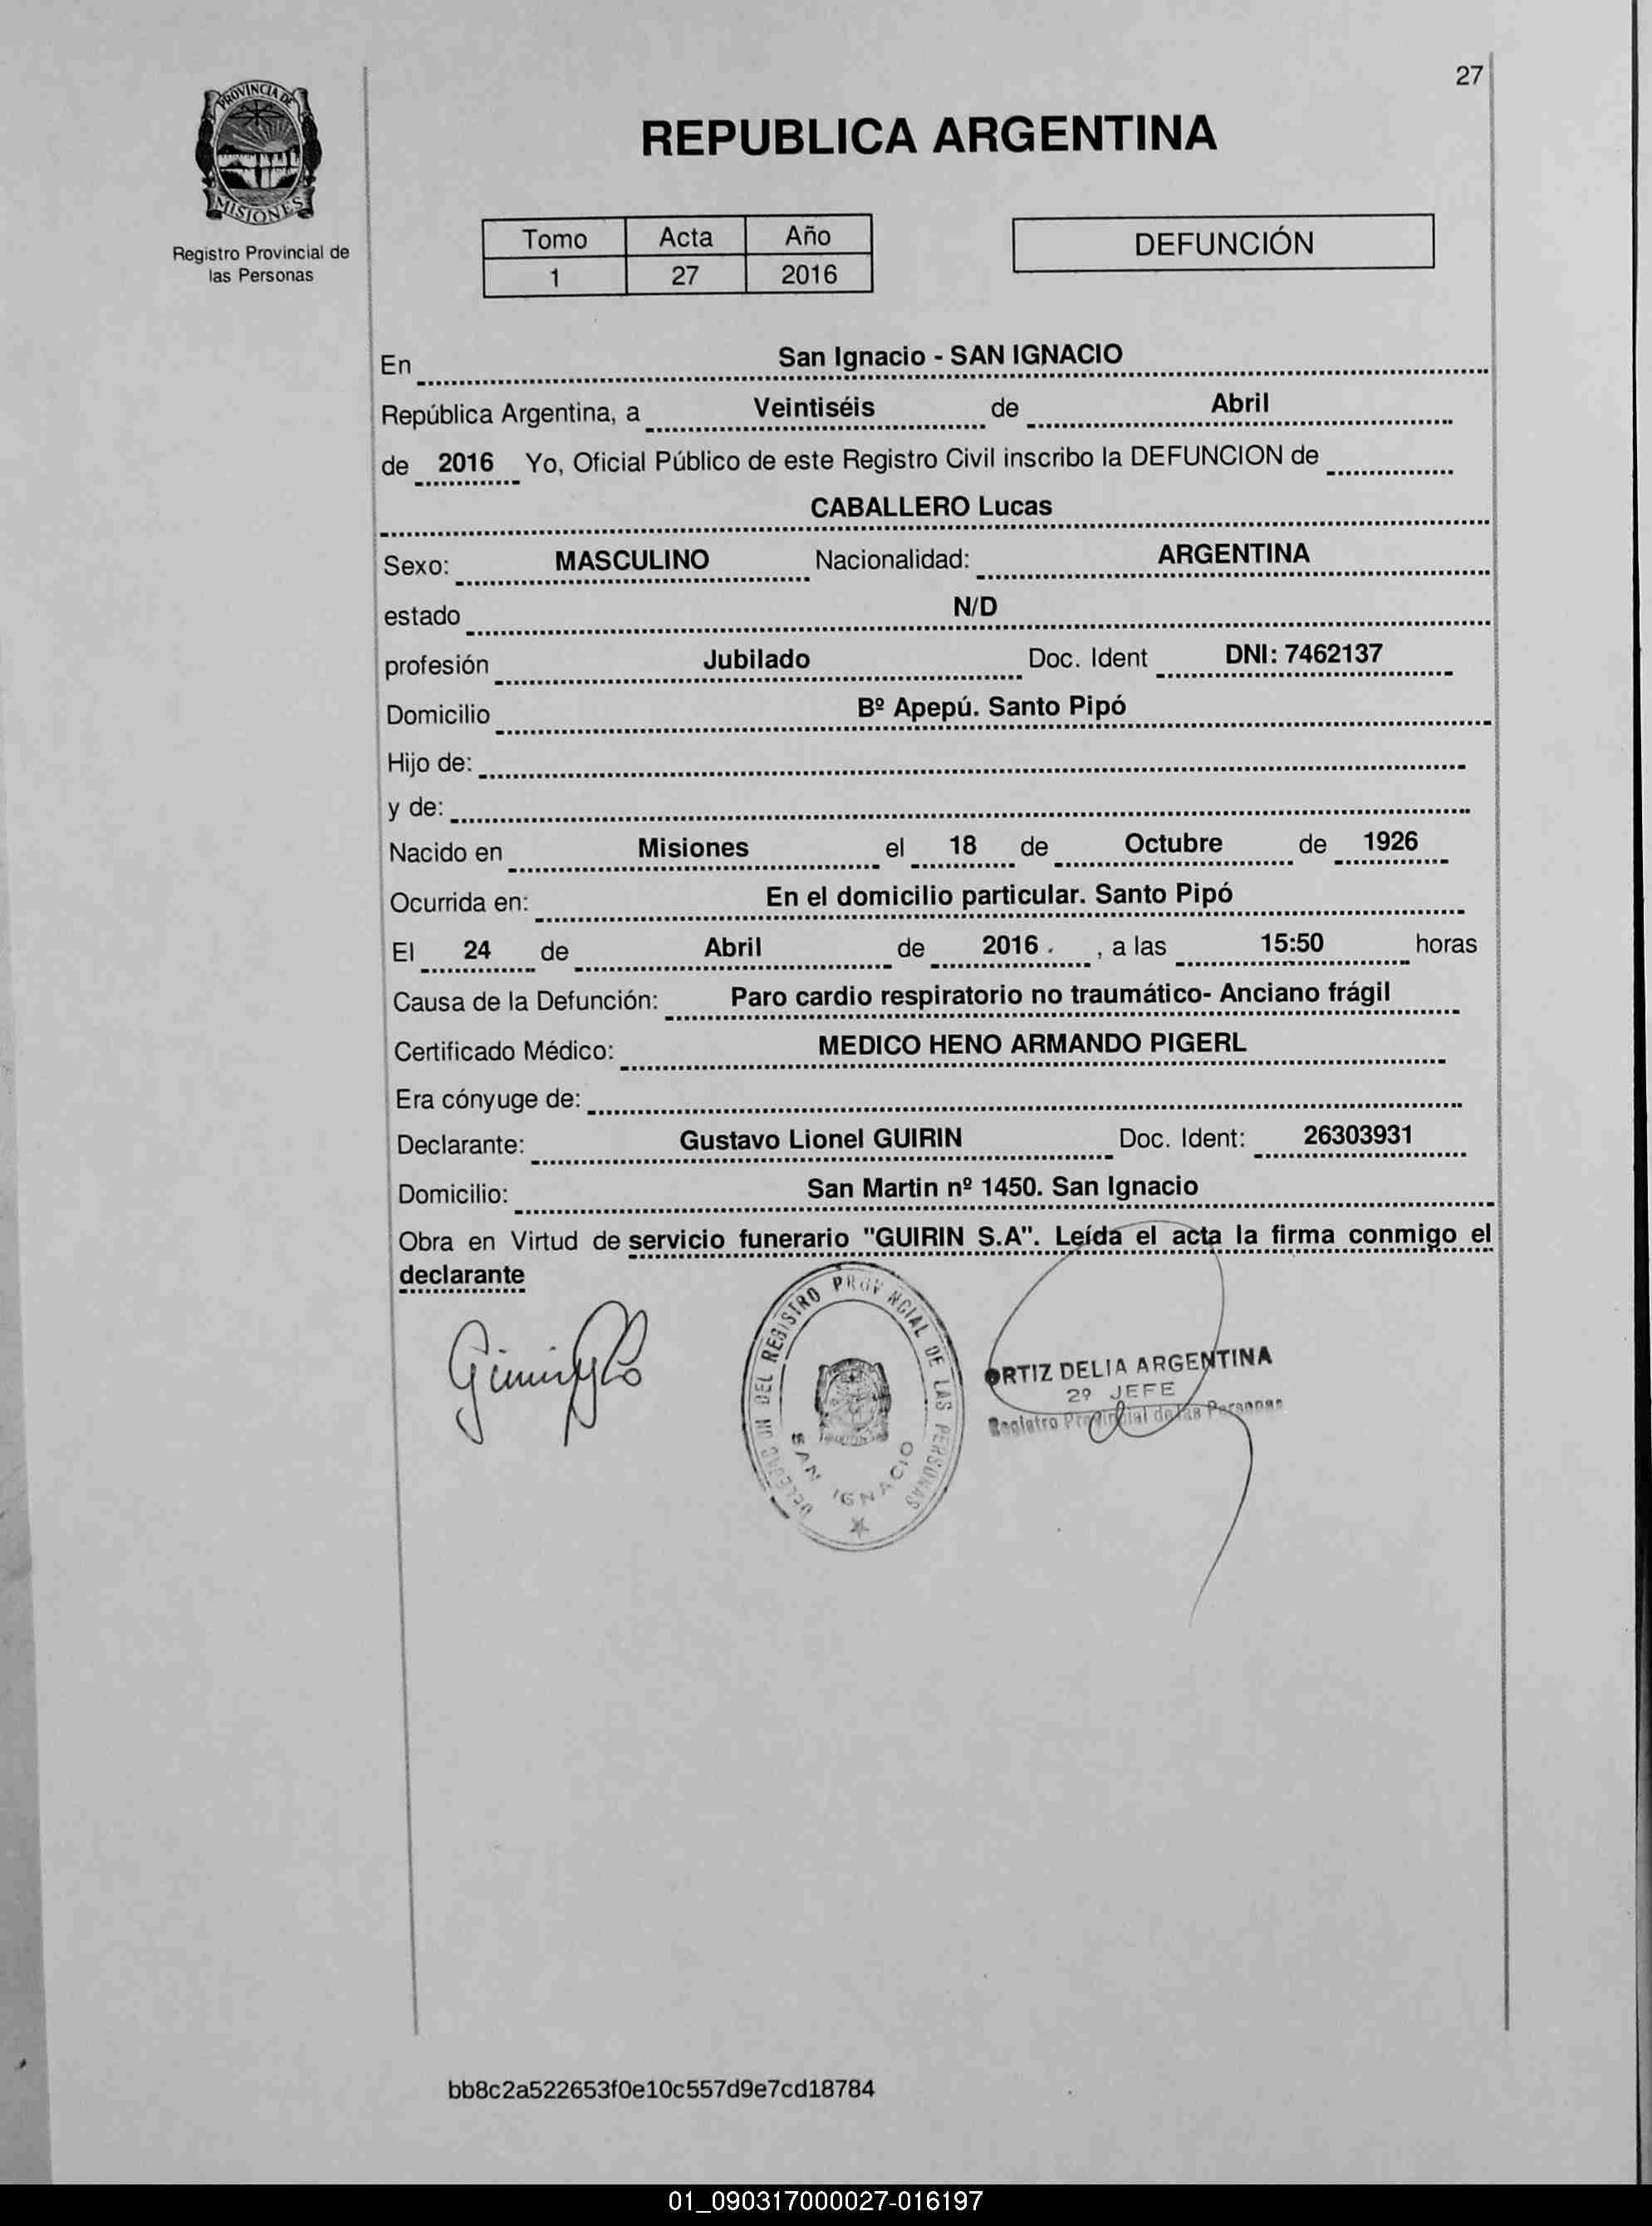 27
PROVINCIA DE
MISIONES
Registro Provincial de
las Personas
REPUBLICA ARGENTINA
Tomo Acta Año
1 27 2016
DEFUNCIÓN
En San Ignacio - SAN IGNACIO
República Argentina, a Veintiséis de Abril
de 2016 Yo, Oficial Público de este Registro Civil inscribo la DEFUNCION de
CABALLERO Lucas
Sexo: MASCULINO Nacionalidad: ARGENTINA
estado N/D
profesión Jubilado Doc. Ident DNI: 7462137
Domicilio Bº Apepú. Santo Pipó
Hijo de:
y de:
Nacido en Misiones el 18 de Octubre de 1926
Ocurrida en: En el domicilio particular. Santo Pipó
El 24 de Abril de 2016 . , a las 15:50 horas
Causa de la Defunción: Paro cardio respiratorio no traumático- Anciano frágil
Certificado Médico: MEDICO HENO ARMANDO PIGERL
Era cónyuge de:
Declarante: Gustavo Lionel GUIRIN Doc. Ident: 26303931
Domicilio: San Martin nº 1450. San Ignacio
Obra en Virtud de servicio funerario "GUIRIN S.A". Leída el acta la firma conmigo el
declarante
DEL REGISTRO PROVINCIAL DE LAS PERSONAS
SAN IGNACIO
ORTIZ DELIA ARGENTINA
2º JEFE
Registro Provincial de las Personas
bb8c2a522653f0e10c557d9e7cd18784
01_090317000027-016197